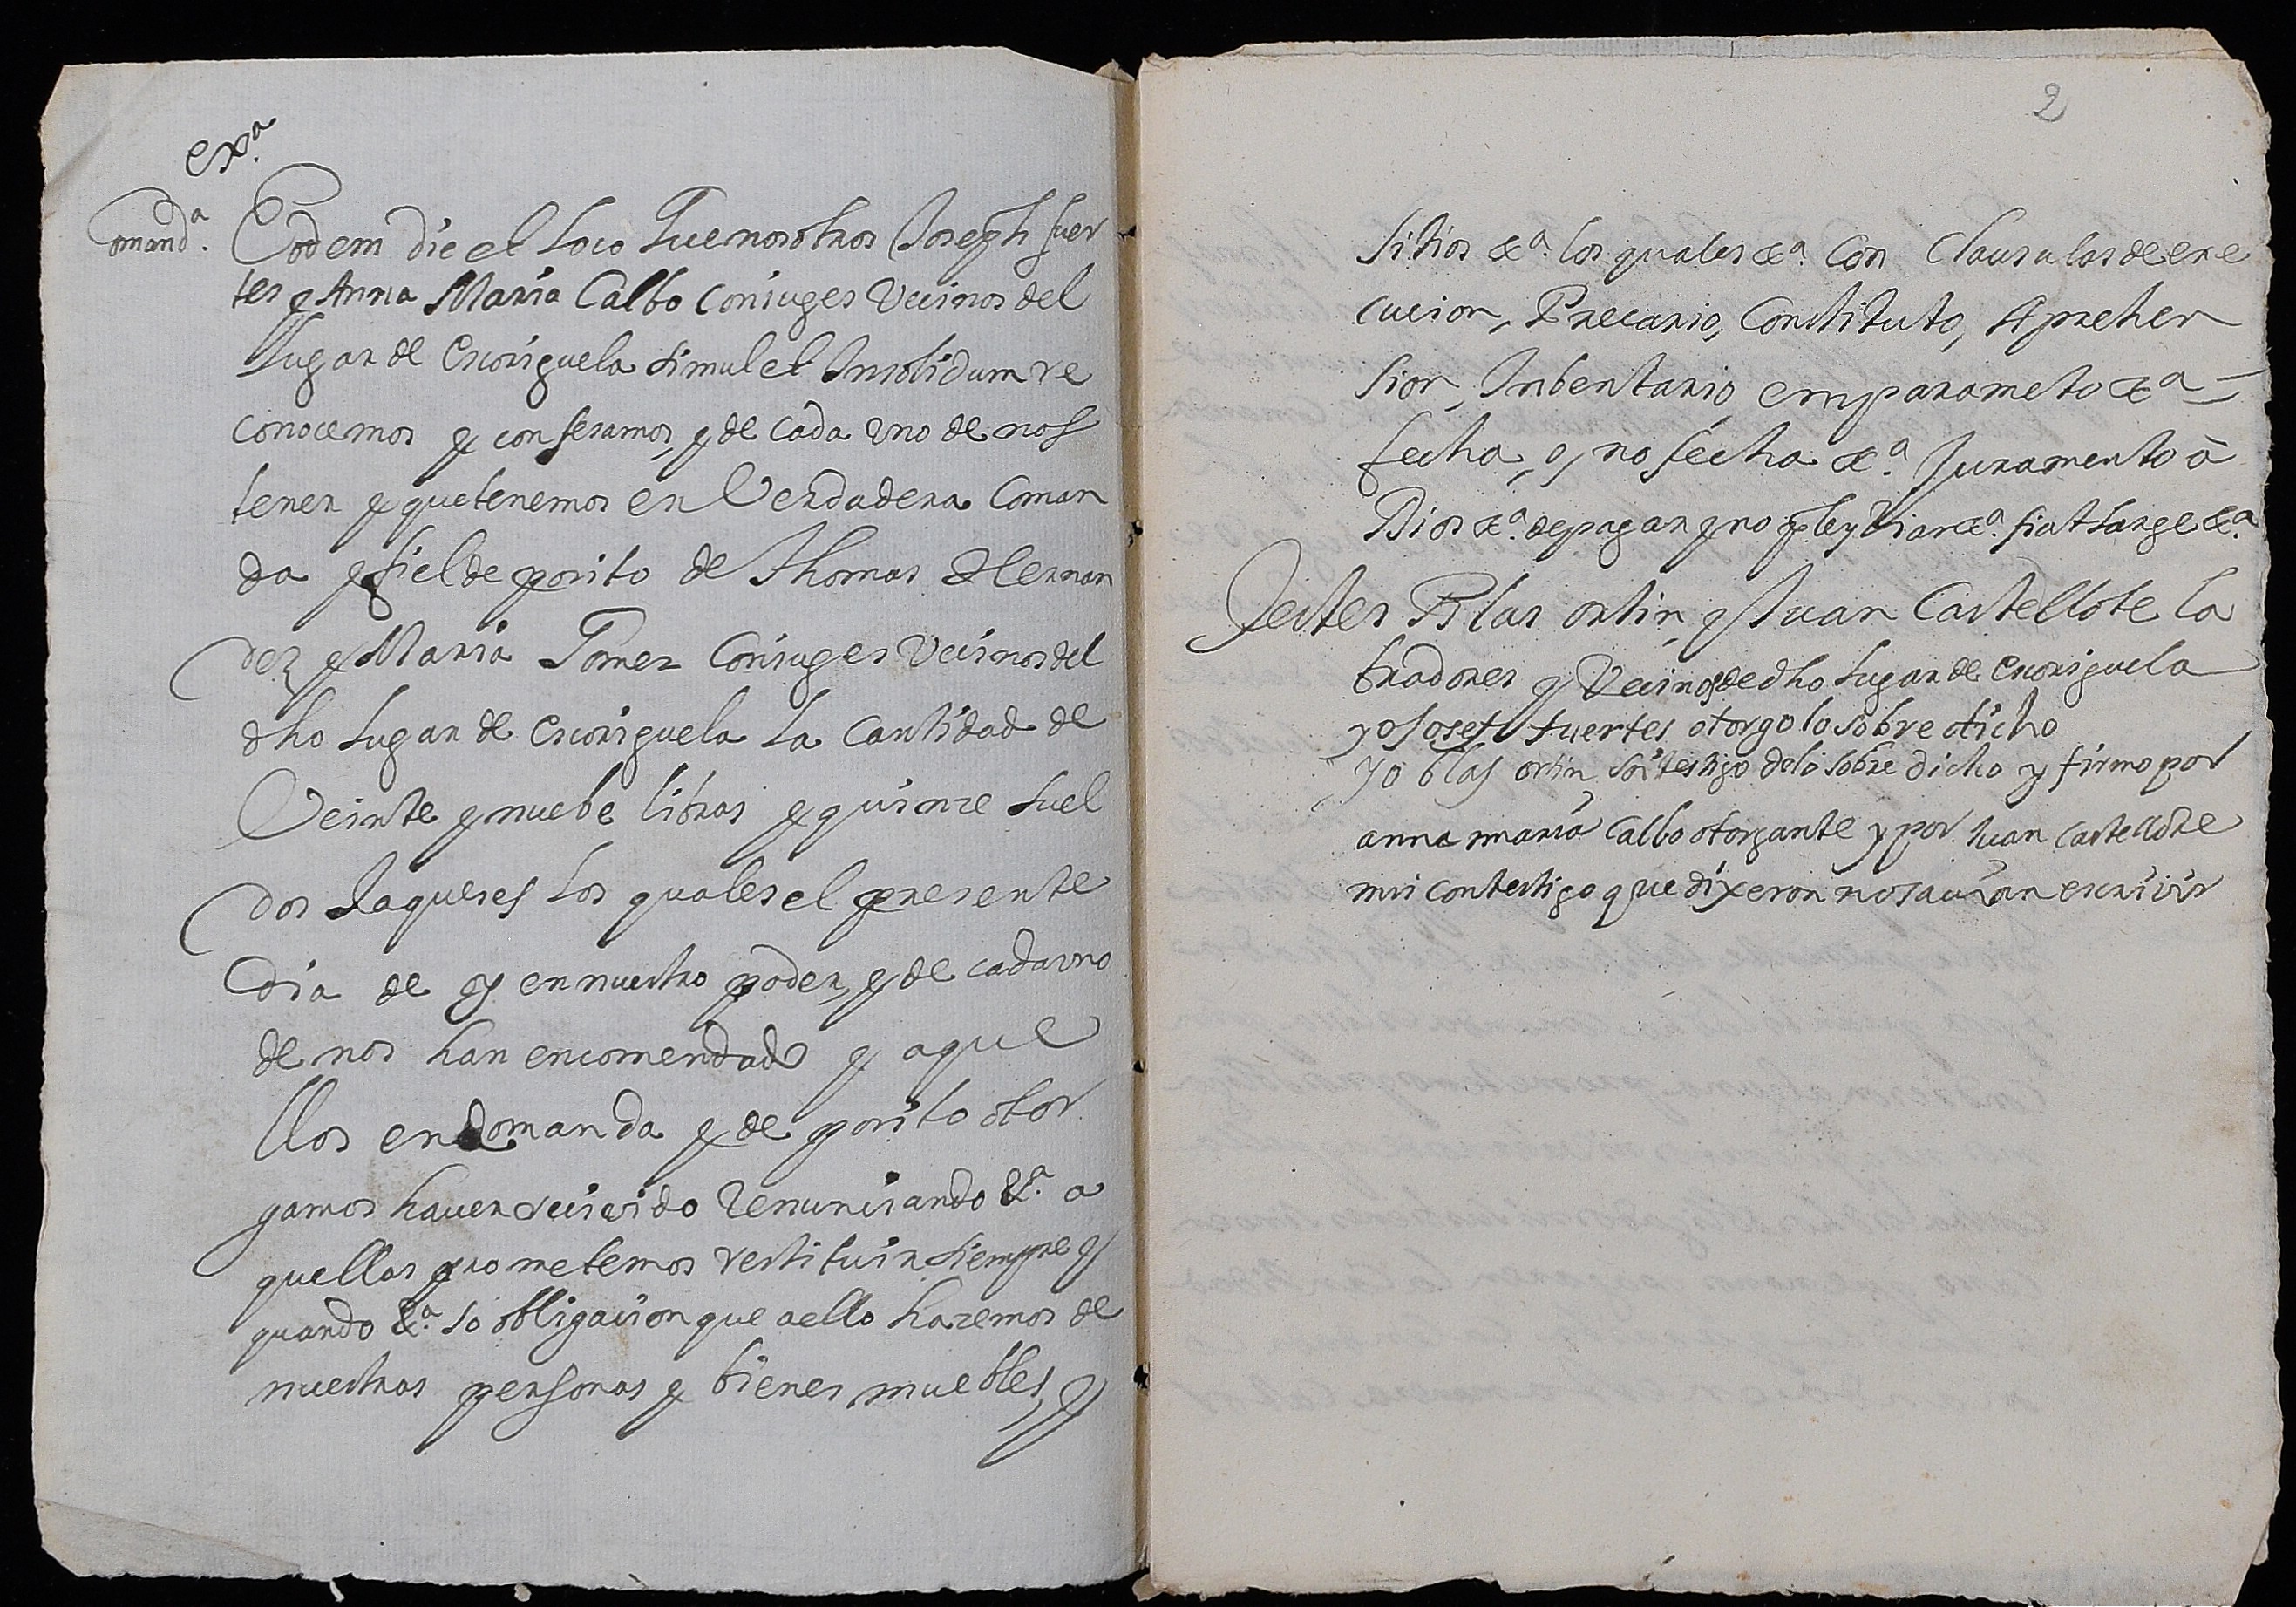 exª.
Comandª. Eodem die et Loco Que nosotros Joseph fuer
tes y Anna Maria Calbo coniuges Vecinos del
Lugar de Escoriguela simul et Insolidum re
conocemos y confesamos, y de cada vno de nos
tener y que tenemos en Verdadera Coman
da y fiel de posito de Thomas Hernan
dez y Maria Gomez Coniuges Vecinos del
dho Lugar de Escoriguela La Cantidad de
Veinte y nuebe libras y quinze suel
dos Jaqueses Los quales el presente
dia de oy en nuestro poder, y de cada vno
de nos han encomendado y aque
llos en Comanda y de posito otor
gamos hauer reciuido renunciando &ª. a
quellas prometemos restituir siempre y
quando &ª. so obligacion que a ello hazemos de
nuestras personas y bienes muebles, y
2
sitios &ª. los quales &ª. Con Clausulas de exe
cucion, Precario, Constituto, Aprehen
sion, Inbentario, emparameto &ª
fecha, o, no fecha &ª. Juramento à
Dios &ª. de pagar y no pleytiar &ª. fiat Large &ª.
Testes Blas ortin, y Juan Castellote la
bradores y Vecinos de dho Lugar de Escoriguela
yo Josef fuertes otorgo lo sobre dicho
yo blas ortin soi testigo de lo sobre dicho y firmo por
anna maria Calbo otorgante y por Juan castellote
mi contestigo que dixeron no sauian escriuir